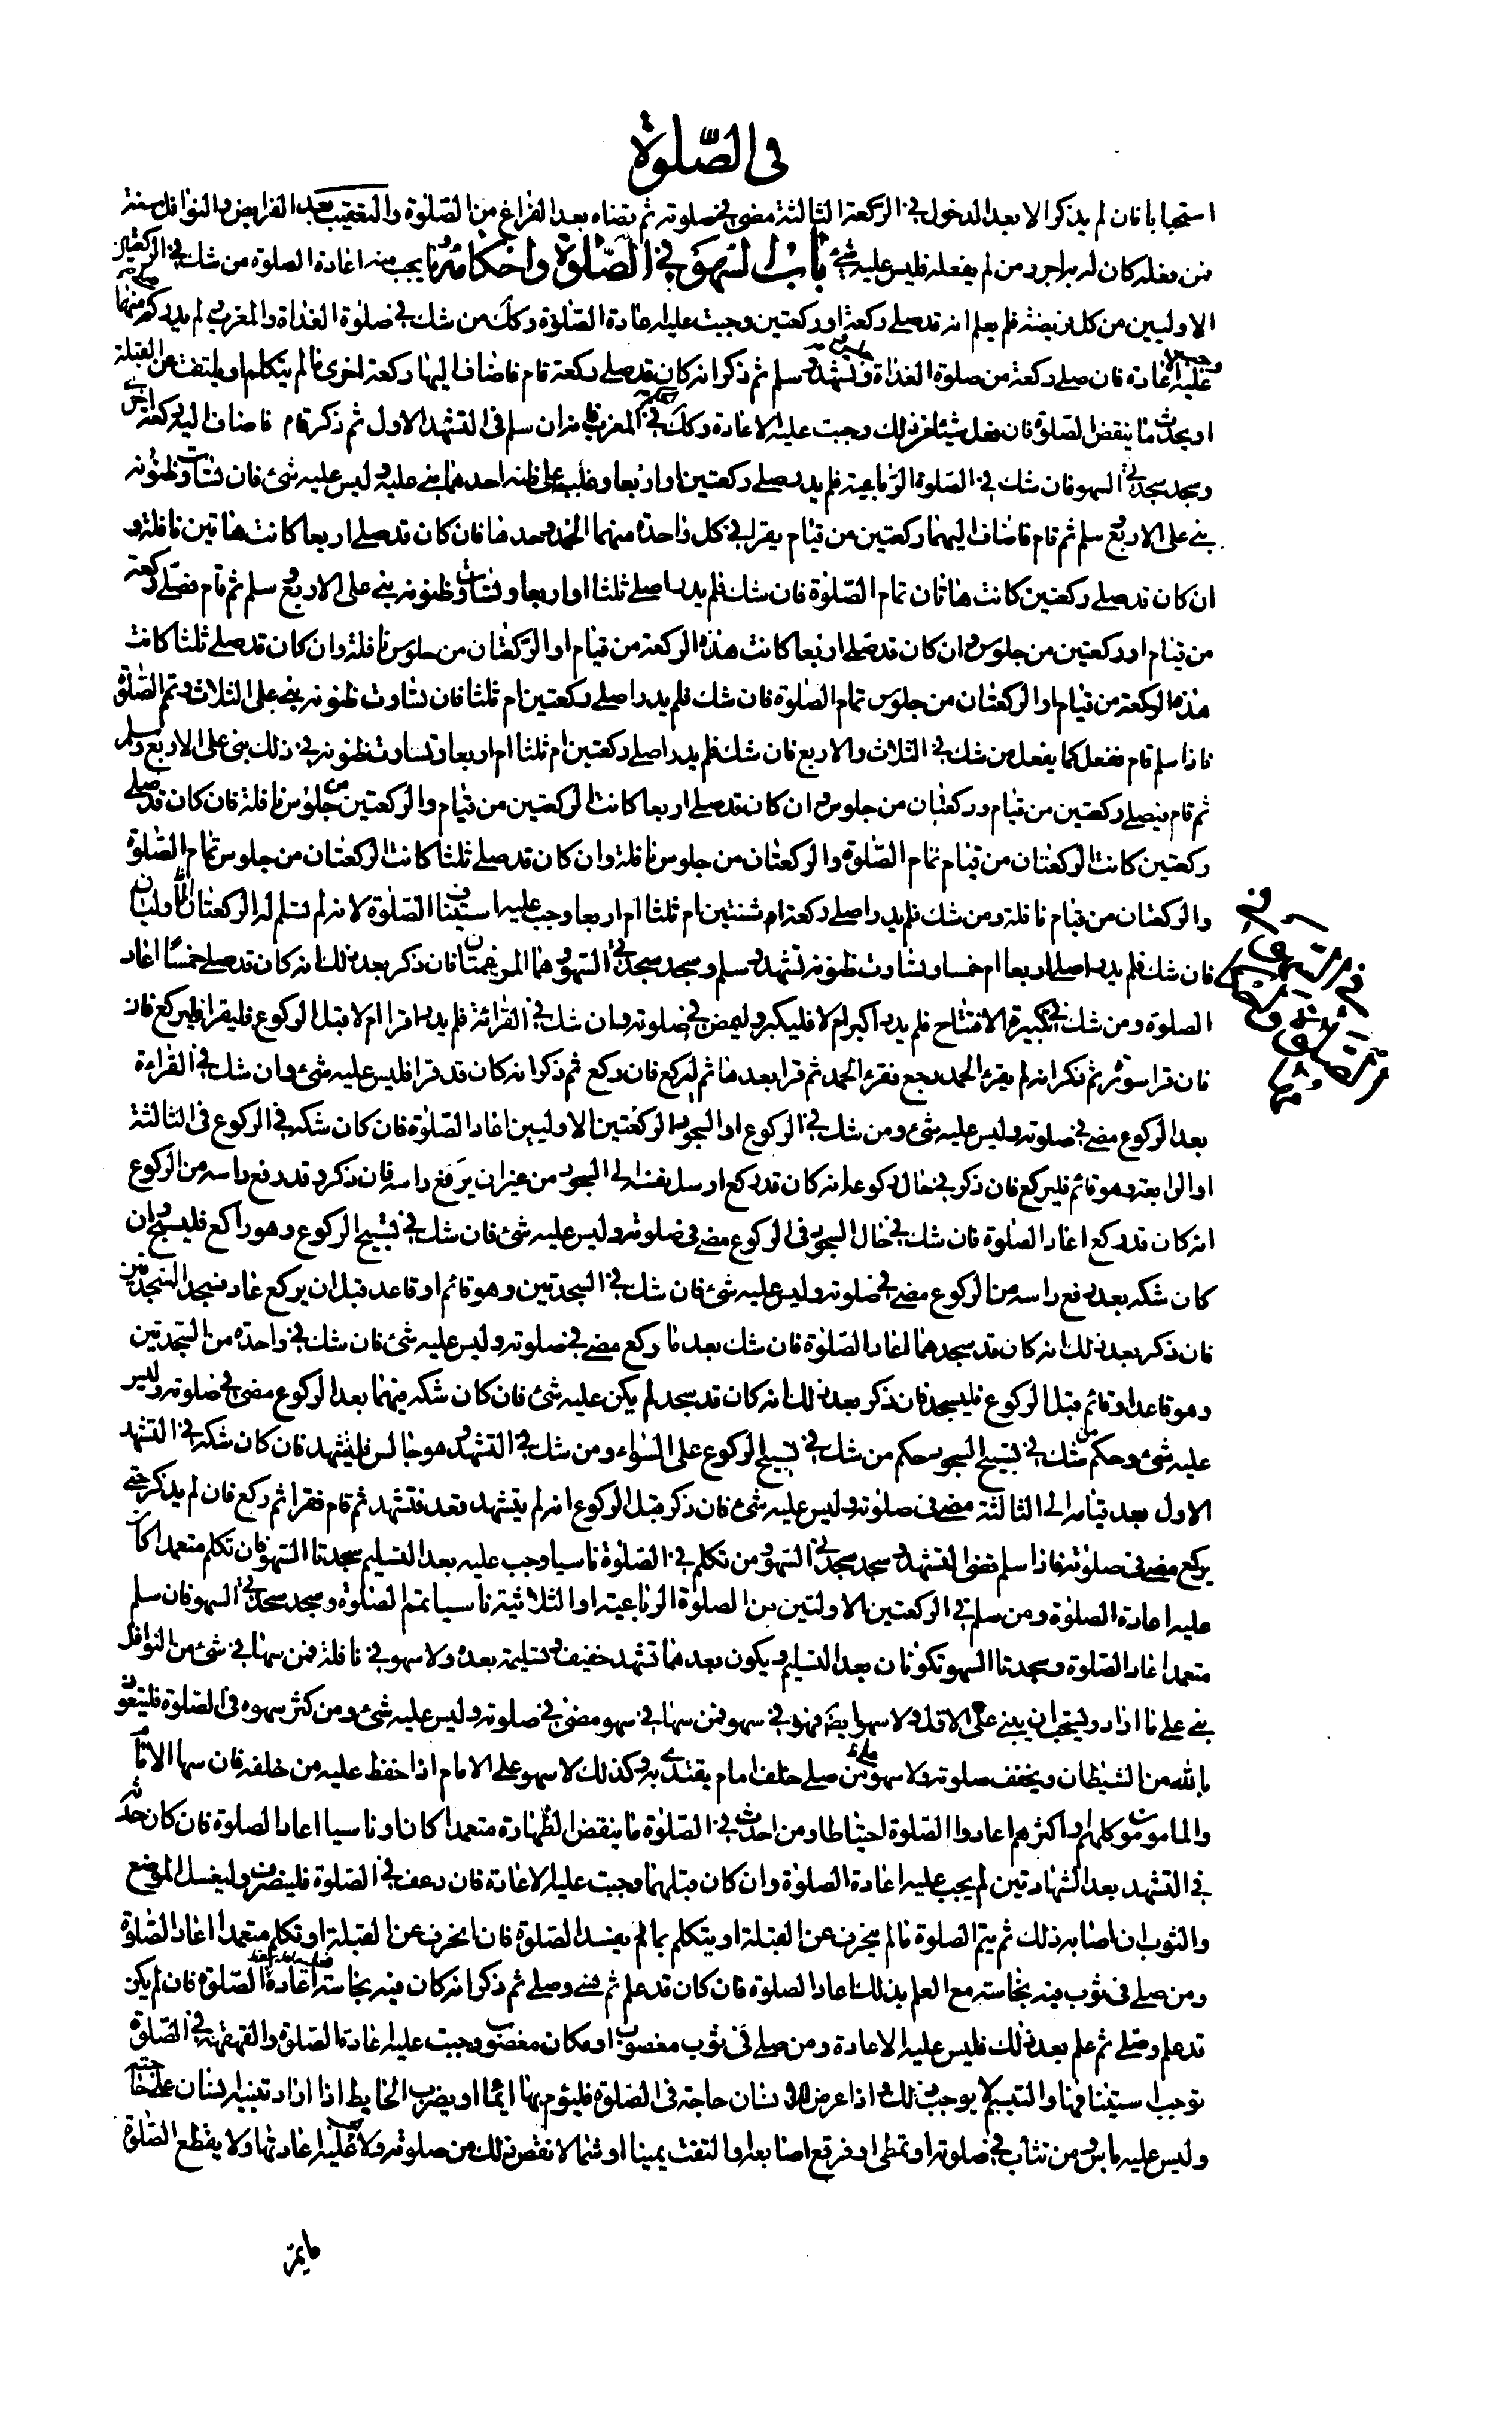 فی الصّلوة
استحبابا فان لم یذکر الا بعد الدخول فی الرکعة الثالثة مضی فی صلوته ثم قضاه بعد الفراغ من الصّلوة والتعقیب بعد الفرایض والنوافل سنة
فمن فعله کان له به اجر ومن لم یفعله فلیس علیه شئ باب السّهو فی الصّلوة واحکامه وما یجب منه اعادة الصلوة من شك فی الرکعتین
الاولیین من کل فریضة فلم یعلم انه قد صلی رکعة او رکعتین وجبت علیه اعادة الصّلوة وکك من شك فی صلوة الغداة والمغرب لم یدر کم صلی منهما
وجب علیه الاعادة فان صلی رکعة من صلوة الغداة وتشهد وسلم ثم ذکر انه کان قد صلی رکعة قام فاضاف الیها رکعة اخری ما لم یتکلم او یلتفت عن القبلة
او یحدث ما ینقض الصّلوة فان فعل شیئا من ذلك وجبت علیه الاعادة وکك فی المغرب فان سلم فی التشهد الاول ثم ذکر قام فاضاف الیه رکعة اخری
وسجد سجدتی السهو فان شك فی الصّلوة الرّباعیة فلم یدر صلی رکعتین او اربعا وغلب علی ظنه احدهما بنی علیه ولیس علیه شئ فان تساوت ظنونه
بنی علی الاربع وسلم ثم قام فاضاف الیهما رکعتین من قیام یقرا فی کل واحدة منهما الحمد وحدها فان کان قد صلی اربعا کانت هاتین نافلة و
ان کان قد صلی رکعتین کانت هاتان تمام الصّلوة فان شك فلم یدر صلی ثلثا او اربعا وتساوت ظنونه بنی علی الاربع وسلم ثم قام فصلی رکعة
من قیام او رکعتین من جلوس وان کان قد صلی اربعا کانت هذه الرکعة من قیام او الرکعتان من جلوس نافلة وان کان قد صلی ثلثا کانت
هذه الرکعة من قیام او الرکعتان من جلوس تمام الصّلوة فان شك فلم یدر اصلی رکعتین ام ثلثا فان تساوت ظنونه بنی علی الثلاث وتم الصّلوة
فاذا سلم قام ففعل کما یفعل من شك فی الثلاث والاربع فان شك فلم یدر اصلی رکعتین ام ثلثا ام اربعا وتساوت ظنونه فی ذلك بنی علی الاربع وسلم
ثم قام فیصلی رکعتین من قیام ورکعتان من جلوس وان کان قد صلی اربعا کانت الرکعتین من قیام والرکعتین من جلوس نافلة فان کان قد صلی
رکعتین کانت الرکعتان من قیام تمام الصّلوة والرکعتان من جلوس نافلة وان کان قد صلی ثلثا کانت الرکعتان من جلوس تمام الصّلوة
والرکعتان من قیام نافلة ومن شك فلم یدر اصلی رکعة ام ثنتین ام ثلثا ام اربعا وجب علیه استیناف الصّلوة لانه لم تسلم له الرکعتان الاولیان
فان شك فلم یدر اصلی اربعا ام خمسا وتساوت ظنونه تشهد وسلم وسجد سجدتی السّهو وهما المرغمتان فان ذکر بعد ذلك انه کان قد صلی خمسًا اعاد
الصلوة ومن شك فی تکبیرة الافتتاح فلم یدر اکبر ام لا فلیکبر ولیمض فی صلوته وان شك فی القرائة فلم یدر اقرا ام لا قبل الرکوع فلیقرا ولیرکع فان
فان قرا سورة ثم ذکر انه لم یقرء الحمد رجع فقرء الحمد ثم قرا بعدها ثم لیرکع فان رکع ثم ذکر انه کان قد قرا فلیس علیه شئ وان شك فی القراءة
بعد الرکوع مضی فی صلوته ولیس علیه شئ ومن شك فی الرکوع او السجود الرکعتین الاولیین اعاد الصّلوة فان کان شکه فی الرکوع فی الثالثة
او الرابعة وهو قائم فلیرکع فان ذکر فی حال رکوعه انه کان قد رکع ارسل نفسه الی السجود من غیر ان یرفع راسه فان ذکر وقد رفع راسه من الرکوع
انه کان قد رکع اعاد الصلوة فان شك فی حال السجود فی الرکوع مضی فی صلوته ولیس علیه شئ فان شك فی تسبیح الرکوع وهو راکع فلیسبح وان
کان شکه بعد رفع راسه من الرکوع مضی فی صلوته ولیس علیه شئ فان شك فی السجدتین وهو قائم او قاعد قبل ان یرکع عاد فسجد السجدتین
فان ذکر بعد ذلك انه کان قد سجدهما اعاد الصّلوة فان شك بعد ما رکع مضی فی صلوته ولیس علیه شئ فان شك فی واحدة من السّجدتین
وهو قاعد او قائم قبل الرکوع فلیسجد فان ذکر بعد ذلك انه کان قد سجد لم یکن علیه شئ فان کان شکه فیهما بعد الرکوع مضی فی صلوته ولیس
علیه شئ وحکم من شك فی تسبیح السجود حکم من شك فی تسبیح الرکوع علی السّواء ومن شك فی التشهد وهو جالس فلیتشهد فان کان شکه فی التشهد
الاول بعد قیامه الی الثالثة مضی فی صلوته ولیس علیه شئ فان ذکر قبل الرکوع انه لم یتشهد فقعد فتشهد ثم قام فقرا ثم رکع فان لم یذکر حتی
یرکع مضی فی صلوته فاذا سلم قضی التشهد وسجد سجدتی السّهو ومن تکلم فی الصّلوة ناسیا وجب علیه بعد التسلیم سجدتا السّهو فان تکلم متعمدا کان
علیه اعادة الصلوة ومن سلم فی الرکعتین الاولتین من الصلوة الرباعیة او الثلاثیة ناسیا تمم الصّلوة وسجد سجدتی السهو فان سلم
متعمدا اعاد الصّلوة وسجدتا السهو تکونان بعد التسلیم ویکون بعدهما تشهد خفیف وتسلیمة بعده ولا سهو فی نافلة فمن سها فی شئ من النوافل
بنی علی ما اراد ویستحب ان یبنی علی الاقل ولا سهو ایضا فی سهو فمن سها فی سهو مضی فی صلوته ولیس علیه شئ ومن کثر سهوه فی الصّلوة فلیتعوذ
بالله من الشیطان ویخفف صلوته ولا سهو علی من صلی خلف امام یقتدی به وکذلك لا سهو علی الامام اذا حفظ علیه من خلفه فان سها الامام
والمامومون کلهم او اکثرهم اعادوا الصّلوة احتیاطا ومن احدث فی الصّلوة ما ینقض الطّهارة متعمدا کان او ناسیا اعاد الصلوة فان کان حدثه
فی التشهد بعد الشهادتین لم یجب علیه اعادة الصلوة وان کان قبلهما وجبت علیه الاعادة فان رعف فی الصّلوة فلینصرف ولیغسل الموضع
والثوب ان اصابه ذلك ثم یتم الصلوة ما لم ینحرف عن القبلة او یتکلم بما لم یفسد الصّلوة فان انحرف عن القبلة او تکلم متعمدا اعاد الصّلوة
ومن صلی فی ثوب فیه نجاسة مع العلم بذلك اعاد الصلوة فان کان قد علم ثم نسی وصلی ثم ذکر انه کان فیه نجاسة اعادة الصّلوة فان لم یکن
قد علم وصلی ثم علم بعد ذلك فلیس علیه الاعادة ومن صلی فی ثوب مغصوب او مکان مغصوب وجبت علیه اعادة الصّلوة والقهقهة فی الصّلوة
توجب استینافها والتبسم لا یوجب ذلك واذا عرض للانسان حاجة فی الصّلوة فلیؤم بها ایماءا او یضرب الحایط اذا اراد تنبیه انسان علی حاجته
ولیس علیه باس ومن تثأب فی صلوته او تمطی او فرقع اصابعه او التفت یمینا او شمالا نقض ذلك من صلوته ولا علیه اعادتها ولا یقطع الصّلوة